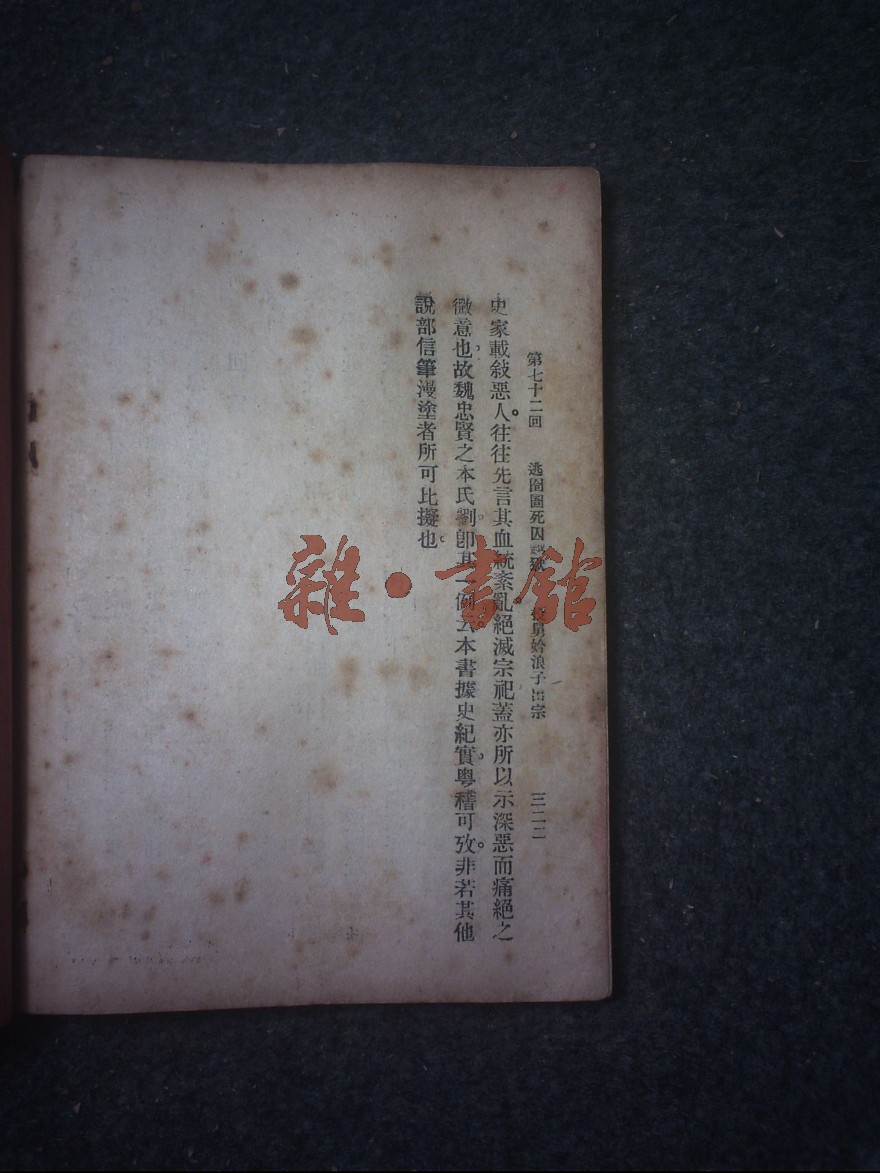 第七十二回 逃囹圄死囚越獄 舅妗浪子出宗 三二二
史家載敍惡人。往往先言其血統紊亂。絕滅宗祀蓋亦所以示深惡而痛絕之
微意也。故魏忠賢之本氏劉。卽其一例云。本書據史紀實。粵稽可攷。非若其他
說部信筆漫塗者所可比擬也。
雜·書館